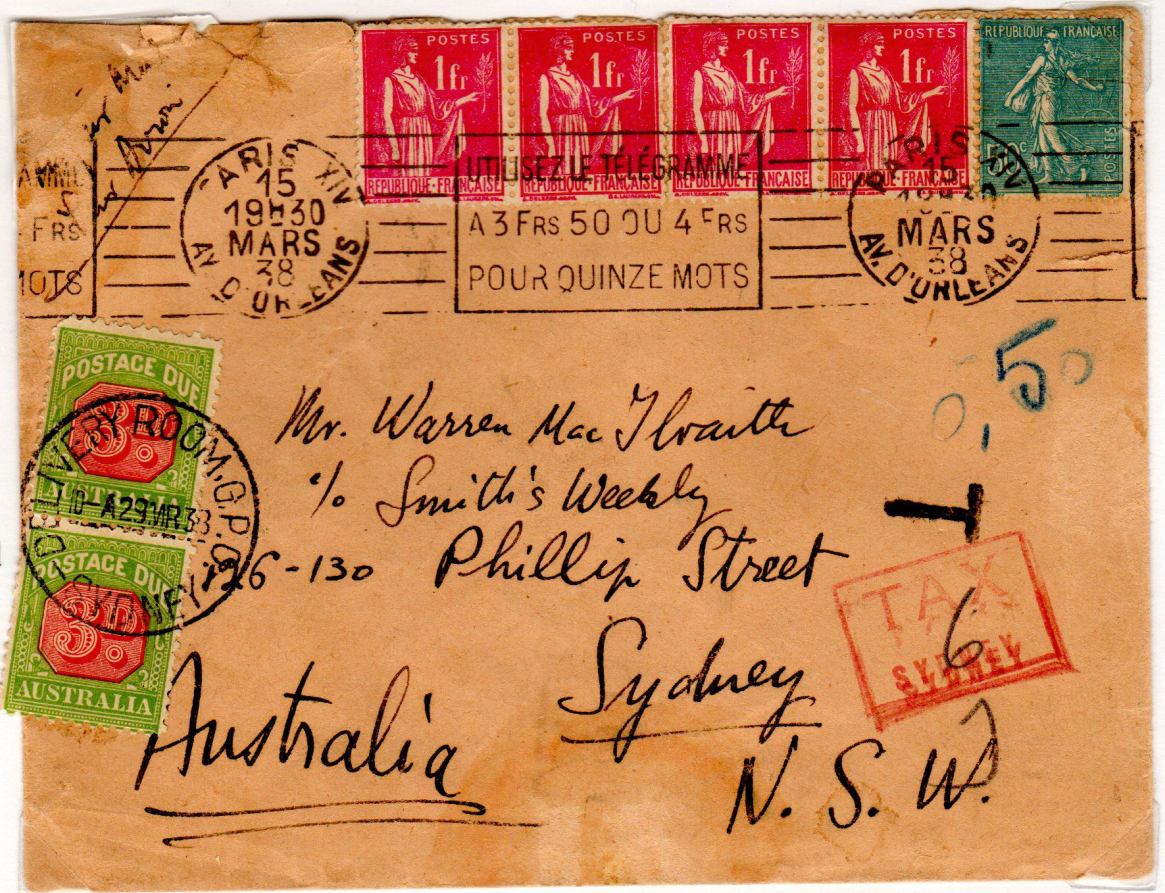 POSTES
1fr
REPUBLIQUE-FRANÇAISE
POSTES
1fr
REPUBLIQUE-FRANÇAISE
POSTES
1fr
REPUBLIQUE-FRANÇAISE
POSTES
1fr
REPUBLIQUE-FRANÇAISE
REPUBLIQUE FRANÇAISE
50c
POSTES
FRS
MOTS
PARIS XIV
15
19H30
MARS
38
AV. D'ORLEANS
UTILISEZ LE TÉLÉGRAMME
A 3 FRS 50 OU 4 FRS
POUR QUINZE MOTS
PARIS XIV
15
19H30
MARS
38
AV. D'ORLEANS
POSTAGE DUE
3D.
AUSTRALIA
DELIVERY ROOM, G.P.O.
10-A29MR38
SYDNEY
POSTAGE DUE
3D.
AUSTRALIA
0,50
Mr. Warren Mac Ilraith
c/o Smith's Weekly
126-130 Phillip Street
Sydney
Australia
N. S. W.
T
TAX
6
SYDNEY